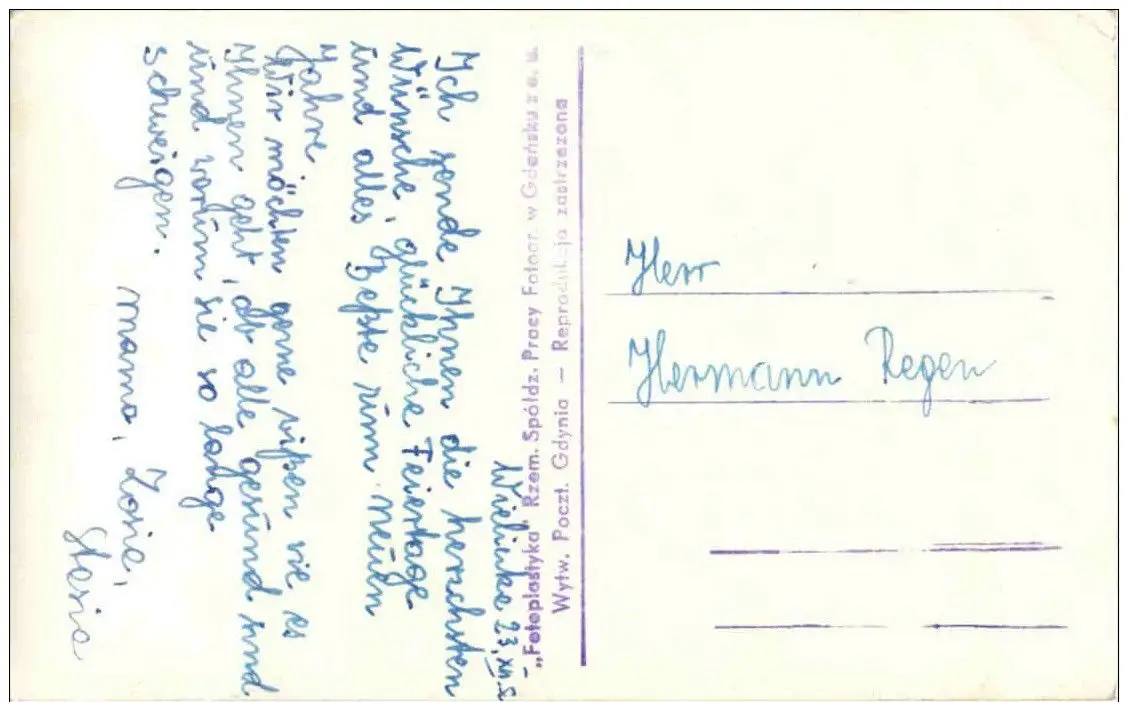 Wieliczka 23, XII.
Ich sende Ihnen die herzchsten
Wünsche, glückliche Feiertage
und alles Beßte zum neuen
Jahre.
Wir möchten gerne wißen wie es
Ihnen geht, ob alle gesund sind
und warum sie so lange
schweigen.
Mama, Zosia,
Stasia
„Fotoplastyka" Rzem. Spółdz. Pracy Fotogr. w Gdańsku z o. u.
Wytw. Poczt. Gdynia — Reprodukcja zastrzeżona
Herr
Hermann Regen